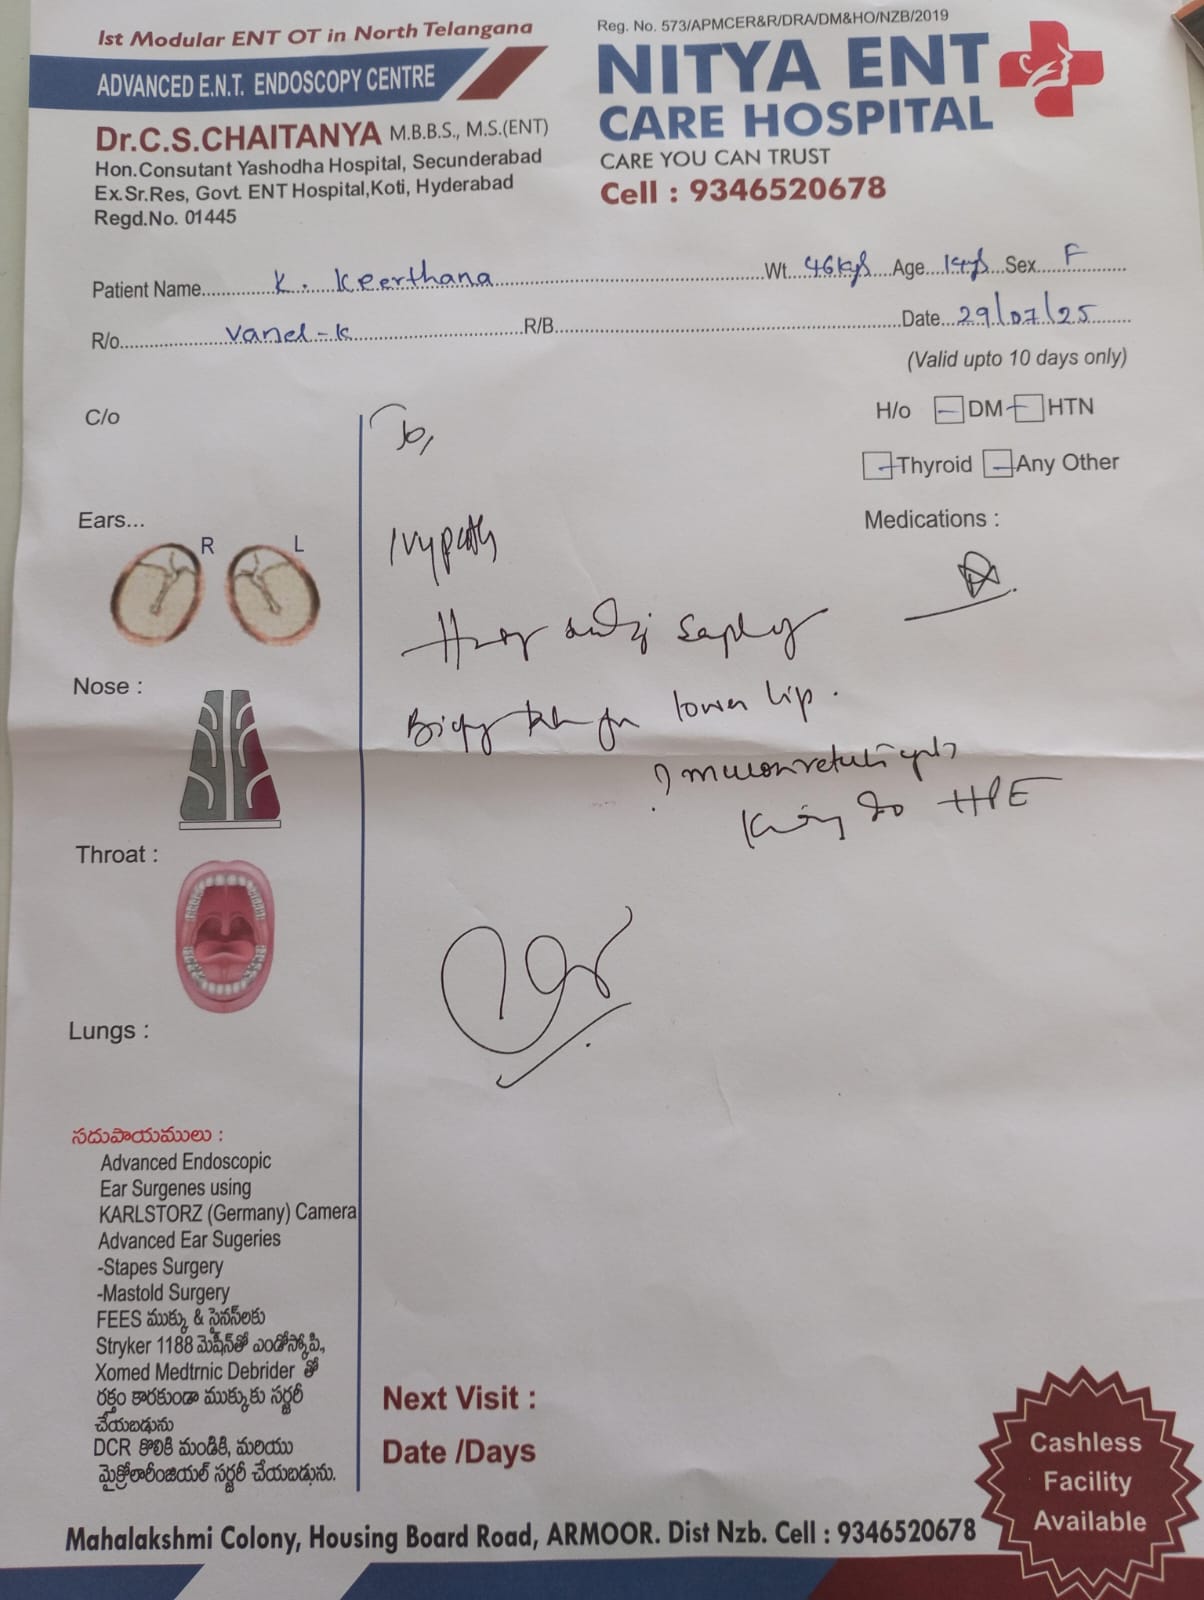 Ist Modular ENT OT in North Telangana
ADVANCED E.N.T. ENDOSCOPY CENTRE
Dr.C.S.CHAITANYA M.B.B.S., M.S.(ENT)
Hon.Consutant Yashodha Hospital, Secunderabad
Ex.Sr.Res, Govt. ENT Hospital,Koti, Hyderabad
Regd.No. 01445
Reg. No. 573/APMCER&R/DRA/DM&HO/NZB/2019
NITYA ENT
CARE HOSPITAL
CARE YOU CAN TRUST
Cell : 9346520678
Patient Name K. Keerthana Wt. 46kgs Age 14ys Sex F
R/o R/B Date 29/07/25
(Valid upto 10 days only)
C/o
H/o DM HTN
Thyroid Any Other
Medications :
To,
Ears...
R L
Nose :
lower lip.
HPE
Throat :
Lungs :
సదుపాయములు :
Advanced Endoscopic
Ear Surgenes using
KARLSTORZ (Germany) Camera
Advanced Ear Sugeries
-Stapes Surgery
-Mastold Surgery
FEES ముక్కు & సైనస్‌లకు
Stryker 1188 మెషీన్‌తో ఎండోస్కోపి,
Xomed Medtrnic Debrider తో
రక్తం కారకుండా ముక్కుకు సర్జరీ
చేయబడును
DCR కొలికి మండికి, మరియు
మైక్రోలారింజియల్ సర్జరీ చేయబడును.
Next Visit :
Date /Days
Cashless
Facility
Available
Mahalakshmi Colony, Housing Board Road, ARMOOR. Dist Nzb. Cell : 9346520678